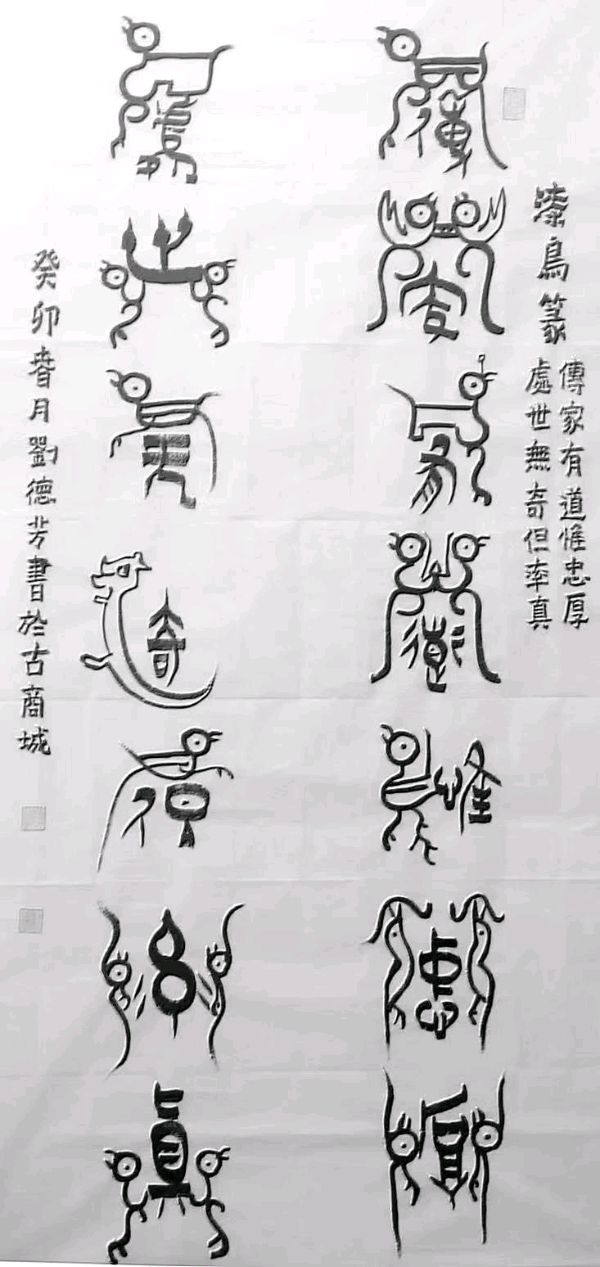 漆鳥篆
傳家有道惟忠厚
處世無奇但率真
傳家有道惟忠厚
處世無奇但率真
癸卯春月劉德芳書於古商城